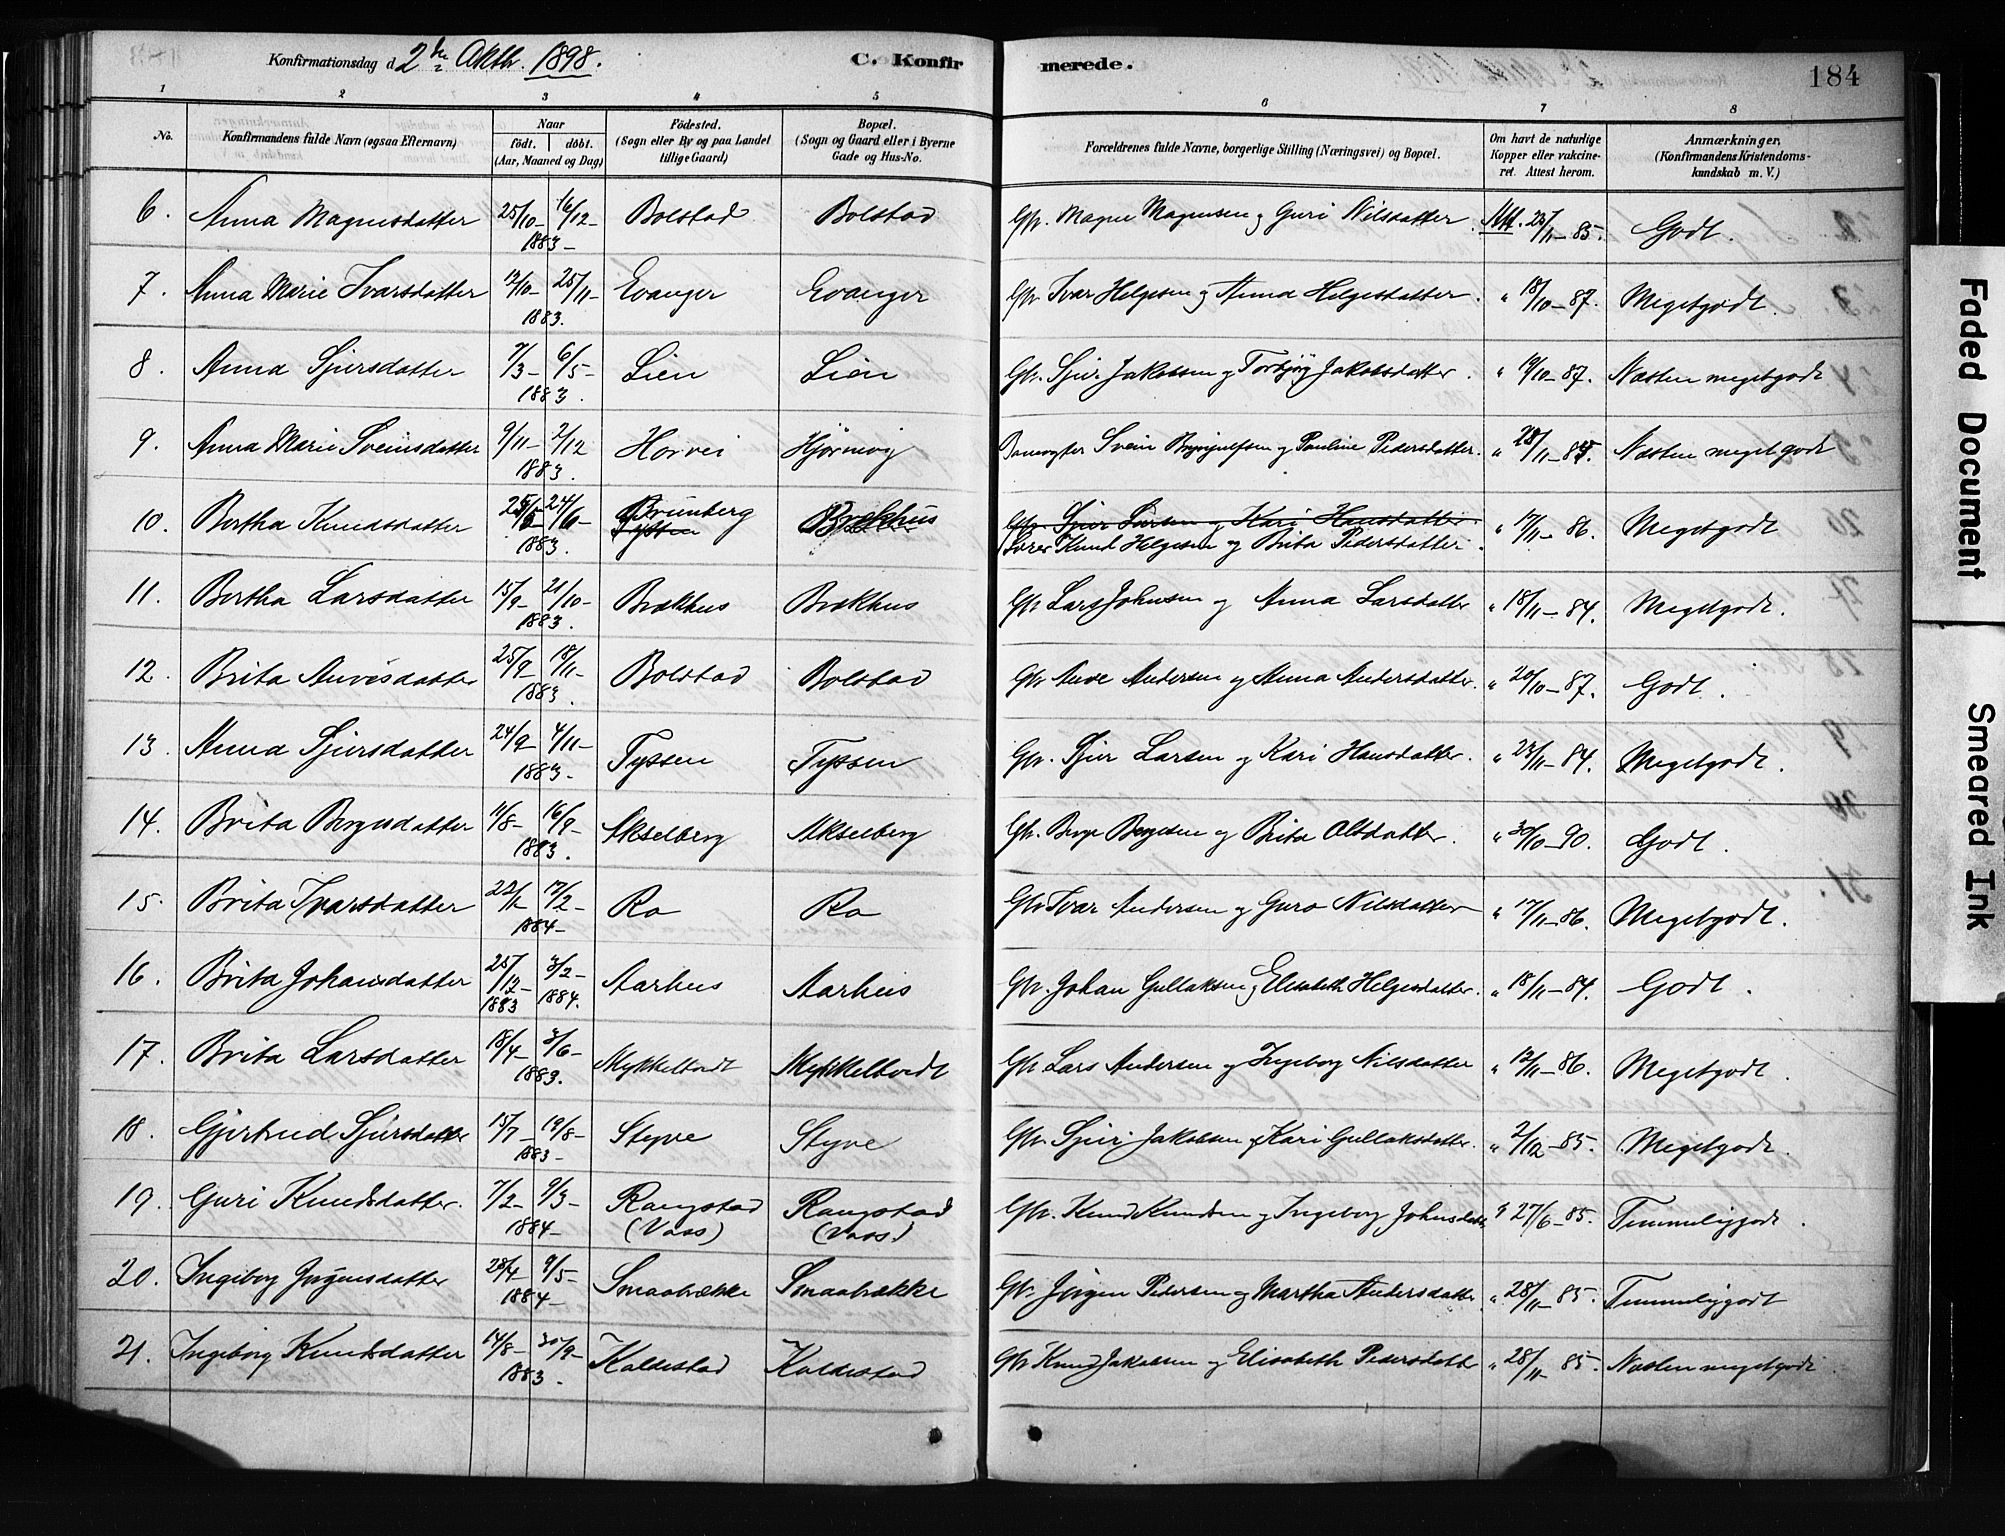 Konfirmationsdag d. 2den Oktbr. 1898. C. Konfir merede. 184
1 2 3 4 5 6 7 8
No. Konfirmandens fulde Navn (ogsaa Efternavn) Naar født. døbt. (Aar, Maaned og Dag) Fødested. (Sogn eller By og paa Landet tillige Gaard) Bopæl. (Sogn og Gaard eller i Byerne Gade og Hus-No. Forældrenes fulde Navne, borgerlige Stilling (Næringsvei) og Bopæl. Om havt de naturlige Kopper eller vakcineret. Attest herom. Anmærkninger. (Konfirmandens Kristendomskundskab m. V.)
6. Anna Magnesdatter 25/10- 16/12- 1883- Bolstad Bolstad Gbr. Magne Magnesen og Guri Nilsdatter. Att. 23/11-85. Godt.
7. Anna Marie Ivarsdatter 12/10- 25/11- 1883. Evanger Evanger Gbr Ivar Helgesen og Anna Helgesdatter. " 18/10-87. Megetgodt.
8. Anna Sjursdatter 7/3- 6/5- 1883. Lien Lien Gbr. Sjur Jakobsen og Torbjørg Jakobsdatter. " 19/10-87. Næsten megetgodt
9. Anna Marie Sveinsdatter 9/11- 2/12 1883. Horvei Hjørnevig Banevogter Svein Brynjulfsen og Pauline Pedersdatter. " 28/11-85. Næsten megetgodt
10. Bertha Knudsdatter 25/5- 24/6- 1883. Brunberg Tyssen Brækhus Gbr. Sjur Larsen og Kari Hansdatter. " 17/11-86. Megetgodt
Knud Helgesen og Brita Pedersdatter.
11. Bertha Larsdatter 15/9- 21/10- 1883. Brækhus Brækhus Gbr Lars Johnsen og Anna Larsdatter " 18/11-84. Megetgodt.
12. Brita Anvesdatter 25/9- 18/11- 1883. Bolstad Bolstad Gbr Anve Andersen og Anna Andersdatter. " 20/10-87. Godt.
13. Anna Sjursdatter 24/9- 4/11- 1883- Tyssen Tyssen Gbr. Sjur Larsen og Kari Hansdatter. " 23/11-84. Megetgodt.
14. Brita Børgesdatter 11/8- 16/9- 1883. Akselberg Akselberg Gbr. Børge Børgesen og Brita Olsdatter. " 30/10-90. Godt.
15. Brita Ivarsdatter 22/1- 17/2- 1884- Ro Ro Gbr Ivar Andersen og Guro Nilsdatter " 17/11-86. Megetgodt.
16. Brita Johansdatter 25/12- 1883 3/2- 1884. Aarhus Aarhus Gbr. Johan Gullaksen og Elisabeth Helgesdatter. " 18/11-84. Godt.
17. Brita Larsdatter 18/4- 3/6- 1883. Mykkeltvedt Mykkeltvedt Gbr Lars Andersen og Ingeborg Nilsdatter " 12/11-86. Megetgodt.
18. Gjertrud Sjursdatter 15/7- 19/8- 1883- Styve Styve Gbr. Sjur Jakobsen og Kari Gullaksdatter. " 2/12-85. Megetgodt.
19. Guri Knudsdatter. 7/2- 9/3- 1884- Rangstad (Voss) Rangstad (Voss) Gbr. Knud Knudsen og Ingeborg Johnsdatter " 27/6-85. Temmeliggodt.
20. Ingeborg Jørgensdatter 28/4- 9/5- 1884- Smaabrække Smaabrække Gbr. Jørgen Pedersen og Martha Andersdatter. " 28/11-85- Temmeliggodt
21. Ingeborg Knudsdatter 14/8- 30/9- 1883. Kaldestad Kaldestad Gbr Knud Jakobsen og Elisabeth Pedersdatter " 28/11-85- Næsten megetgodt
Faded Document
Smeared Ink